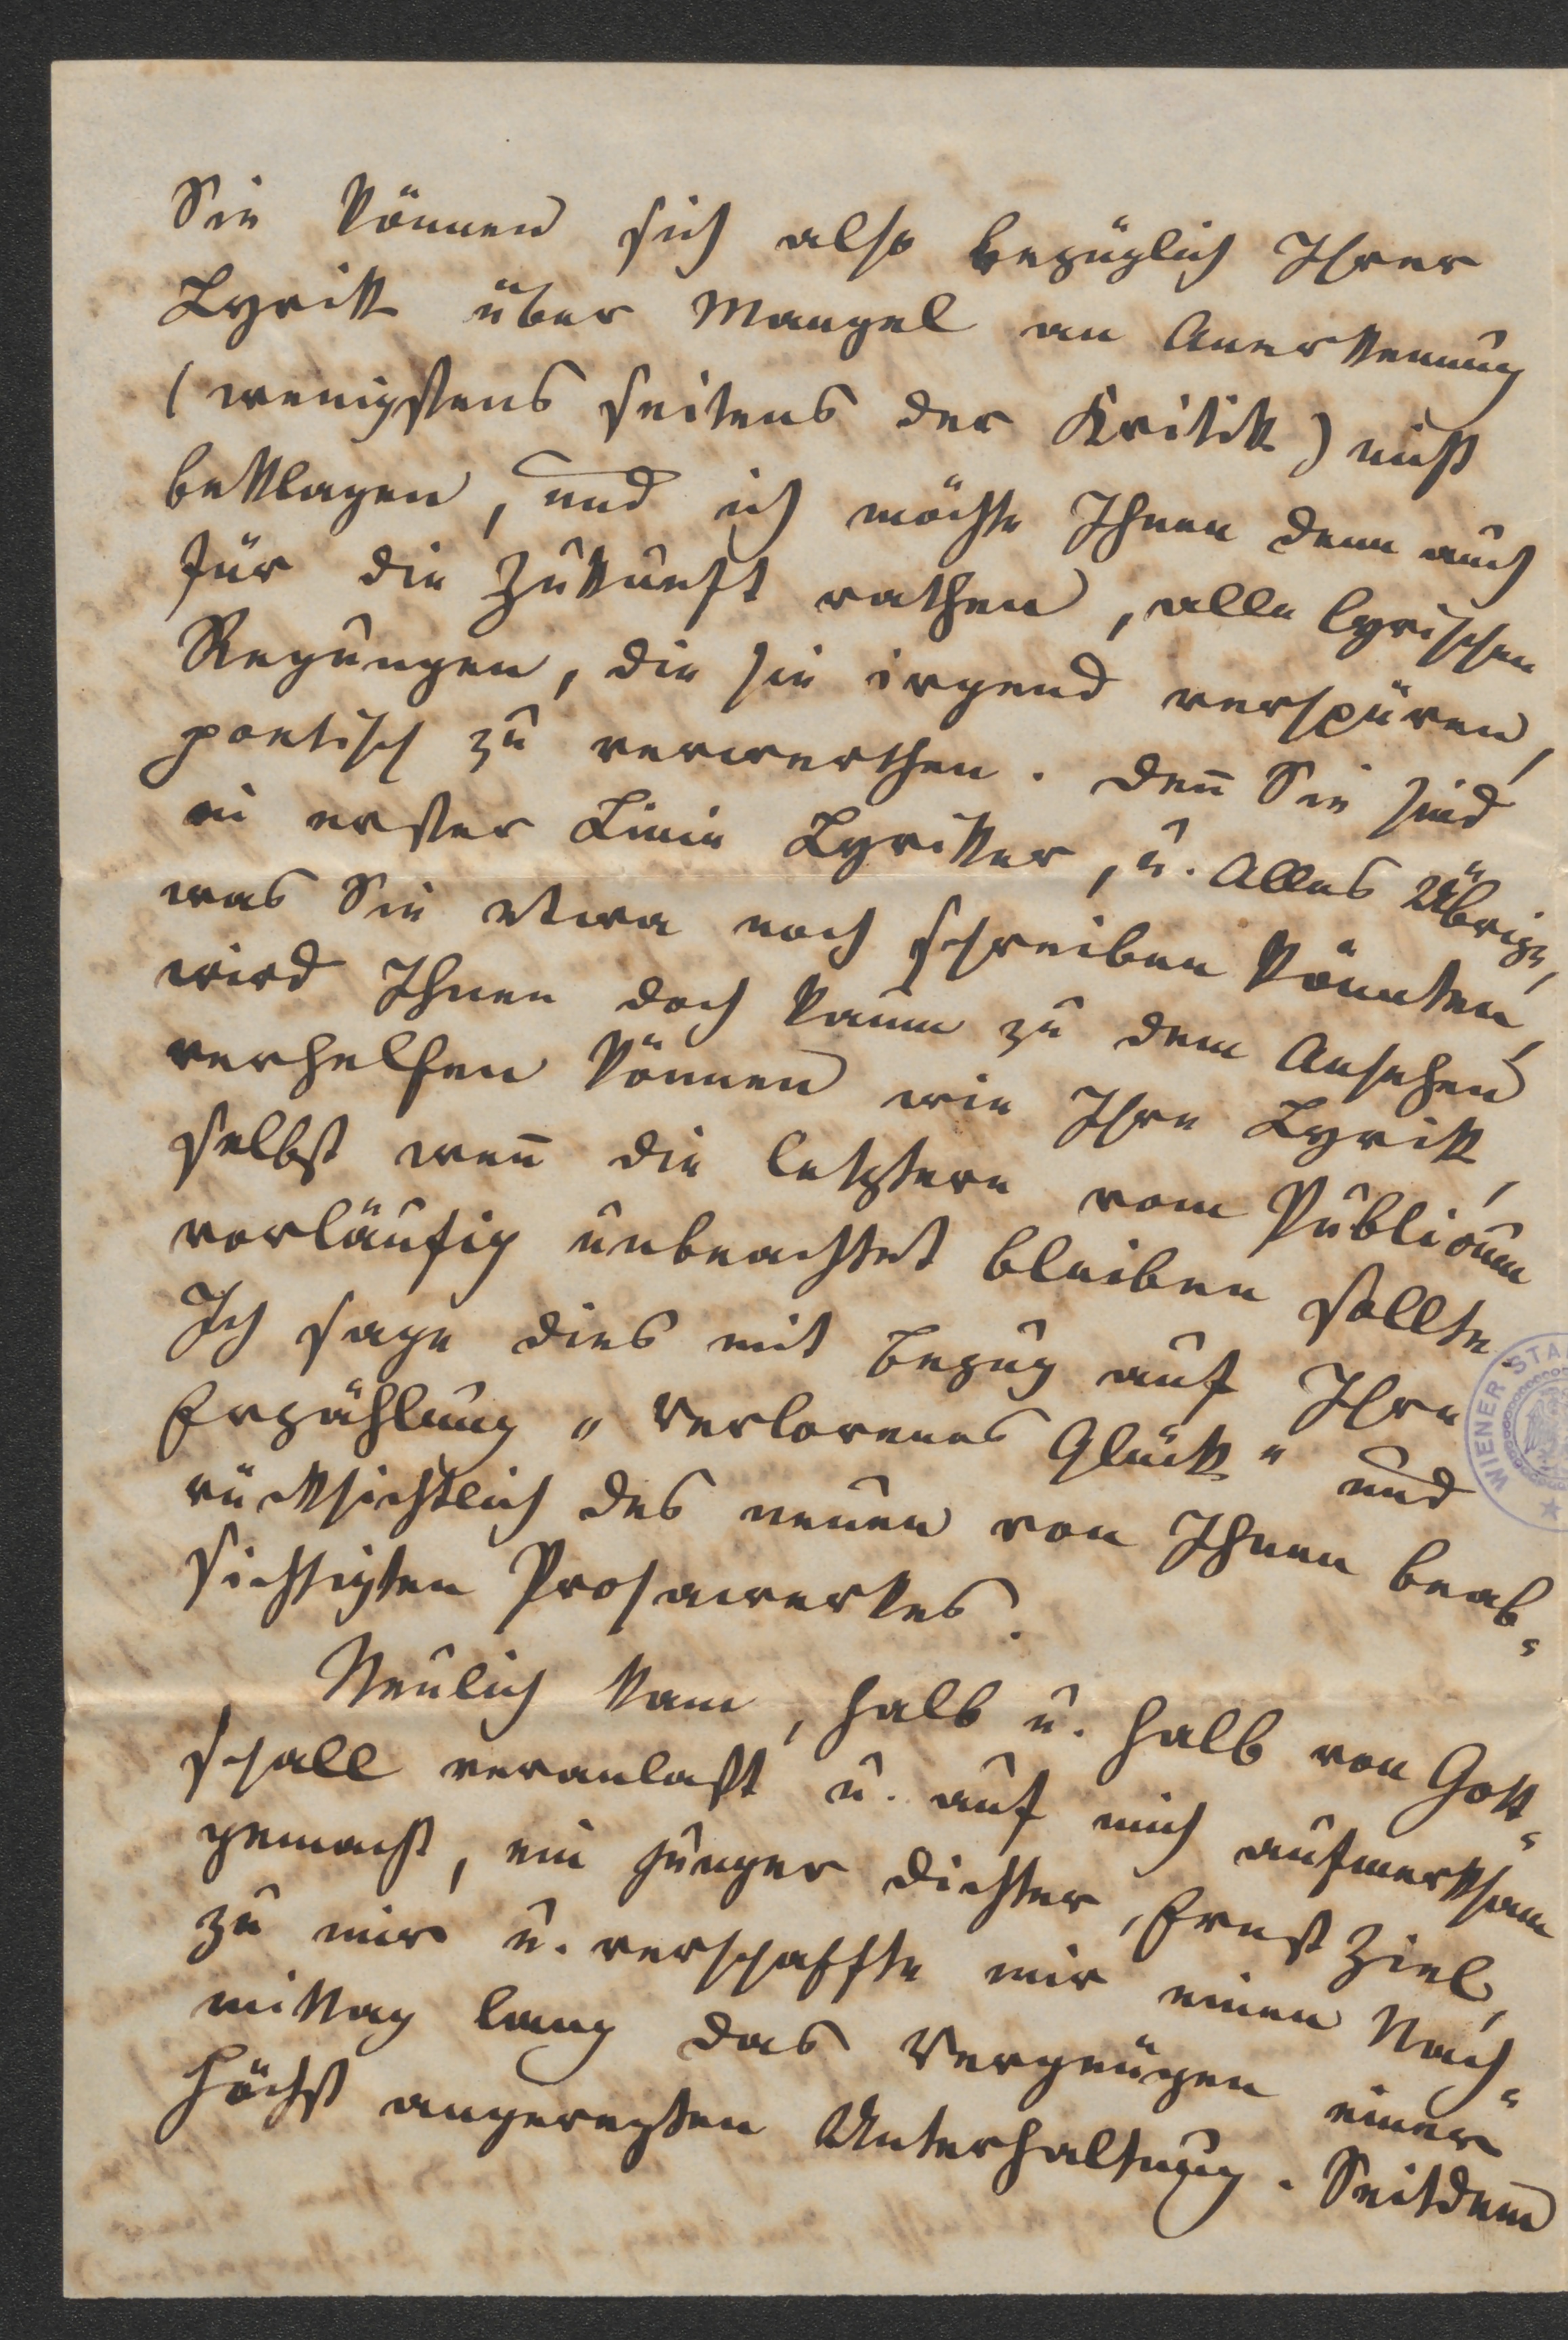 Sie können sich also bezüglich Ihrer
Lyrik über Mangel an Anerkennung
(wenigstens seitens der Kritik) nicht
beklagen, und ich möchte Ihnen denn auch
für die Zukunft rathen, alle lyrischen
Regungen, die sie irgend verspüren,
poetisch zu verwerthen. Den̄ Sie sind
in erster Linie Lyriker, u. Alles Übrige,
was Sie etwa noch schreiben könnten,
wird Ihnen doch kaum zu dem Ansehen
verhelfen können wie Ihre Lyrik,
selbst wen̄ die letztere vom Publicum
vorläufig unbeachtet bleiben sollte.
Ich sage dies mit Bezug auf Ihre
Erzählung „Verlorenes Glück" und
rücksichtlich des neuen von Ihnen beab-
sichtigten Prosawerkes.
Neulich kam, halb u. halb von Gott-
schall veranlaßt u. auf mich aufmerksam
gemacht, ein junger Dichter, Ernst Ziel,
zu mir u. verschaffte mir einen Nach-
mittag lang das Vergnügen einer
höchst angeregten Unterhaltung. Seitdem
WIENER STA